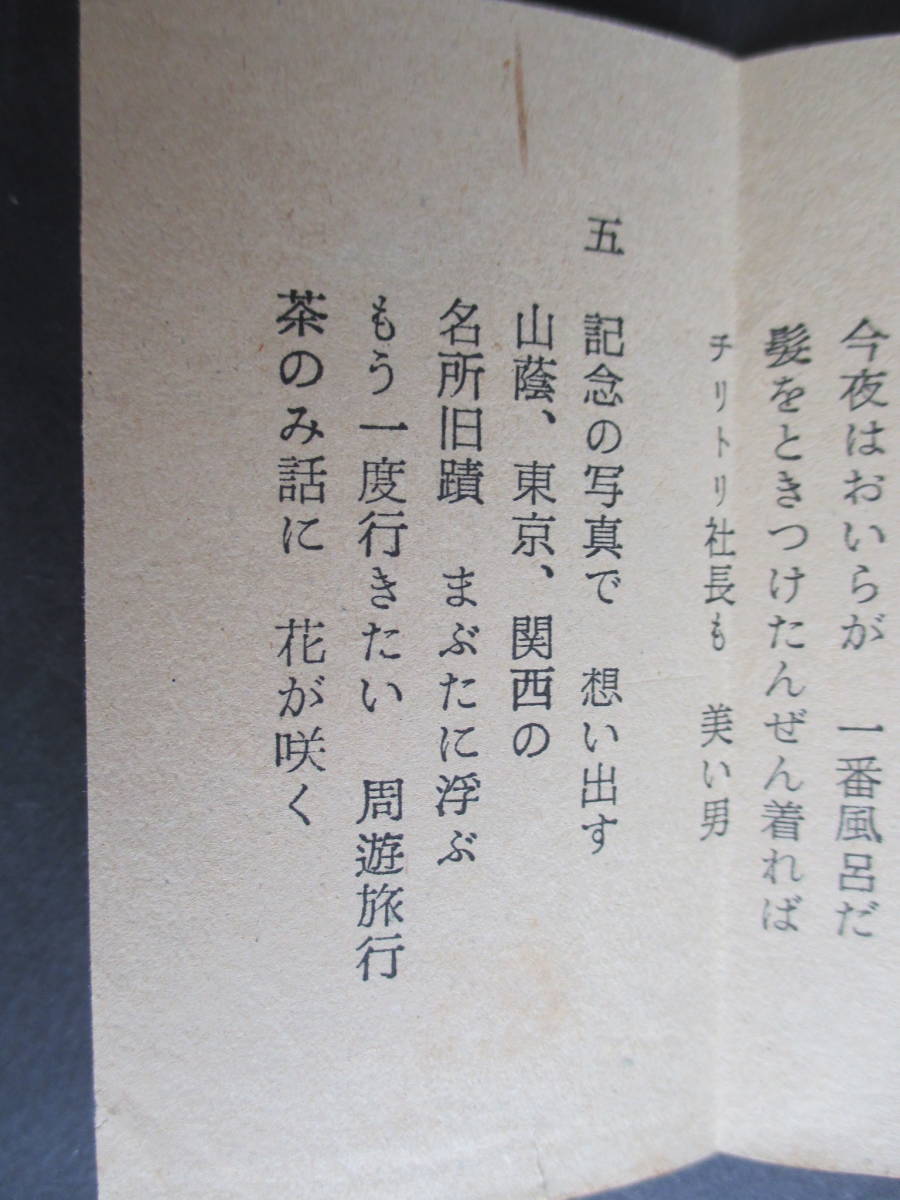 今夜はおいらが　一番風呂だ
髪をときつけたんぜん着れば
チリトリ社長も　美い男
五　記念の写真で　想い出す
山蔭、東京、関西の
名所旧蹟　まぶたに浮ぶ
もう一度行きたい　周遊旅行
茶のみ話に　花が咲く